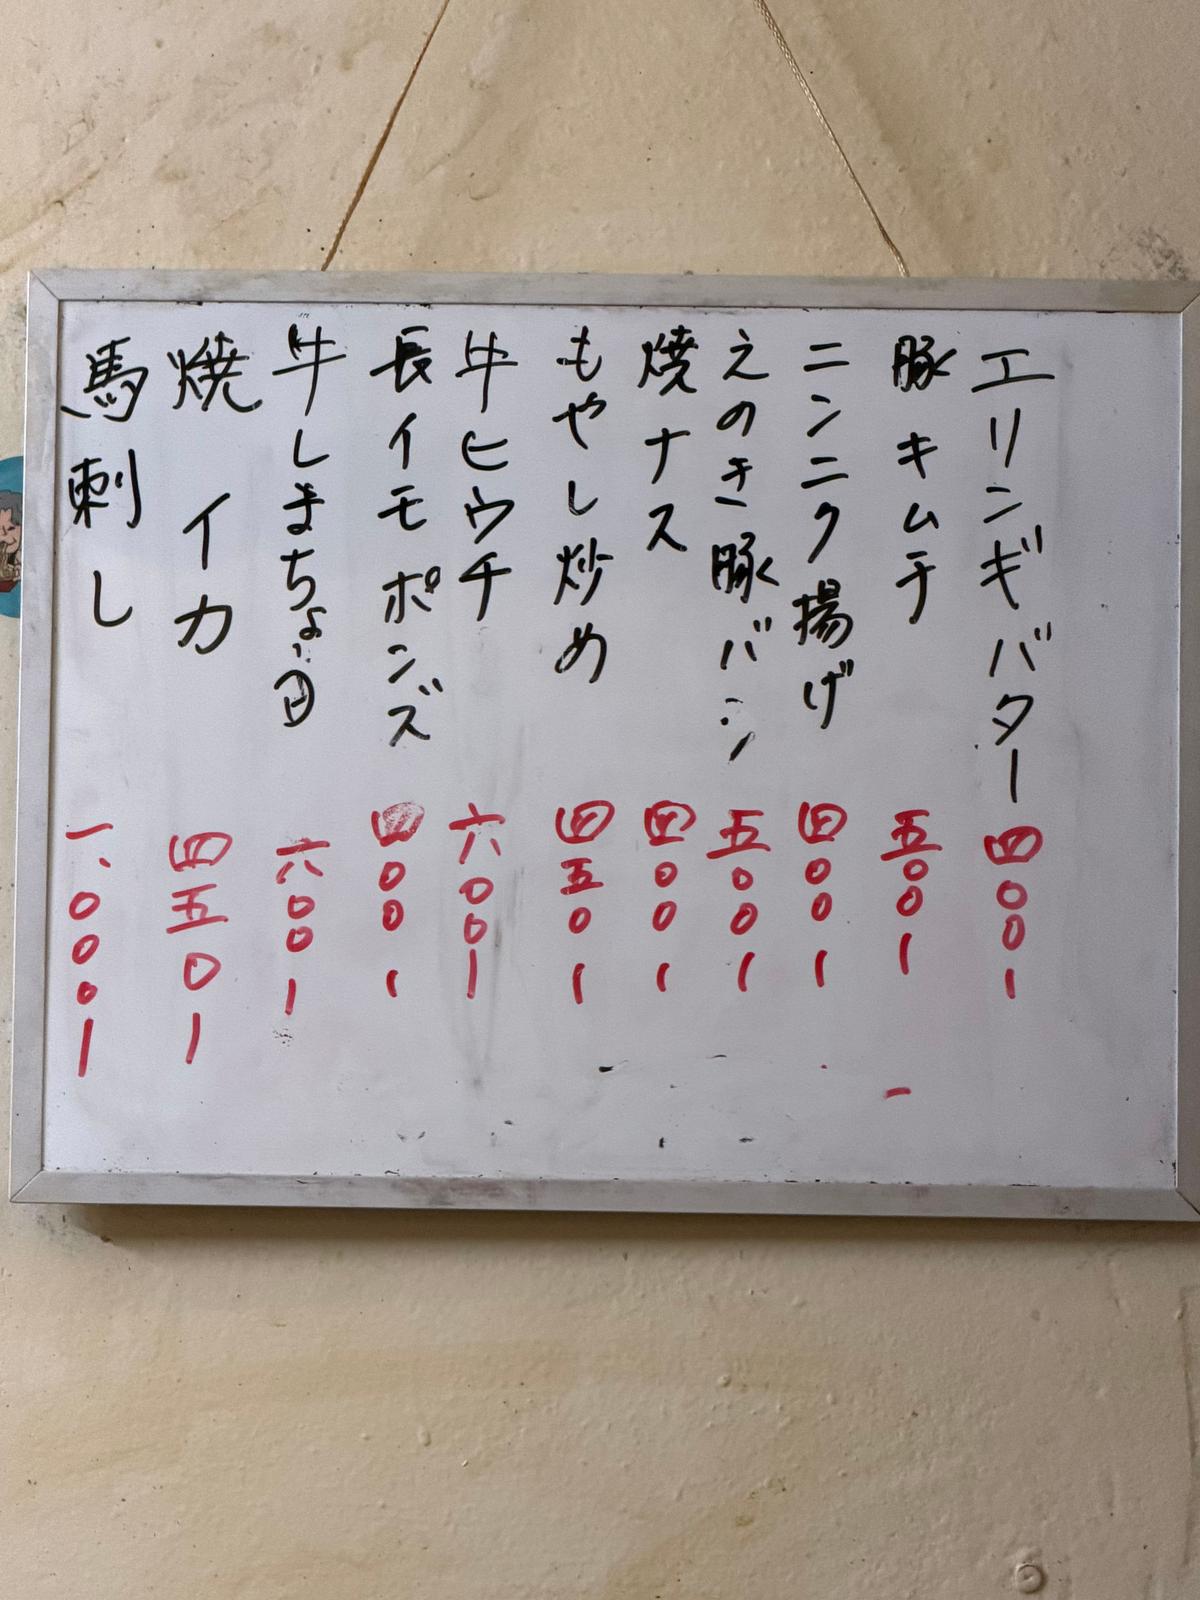 エリンギバター 四〇〇ー
豚キムチ 五〇〇ー
ニンニク揚げ 四〇〇ー
えのき豚バン 五〇〇ー
焼ナス 四〇〇ー
もやし炒め 四五〇ー
牛ヒウチ 六〇〇ー
長イモポンズ 四〇〇ー
牛しまちょう 六〇〇ー
焼イカ 四五〇ー
馬刺し 一、〇〇〇ー